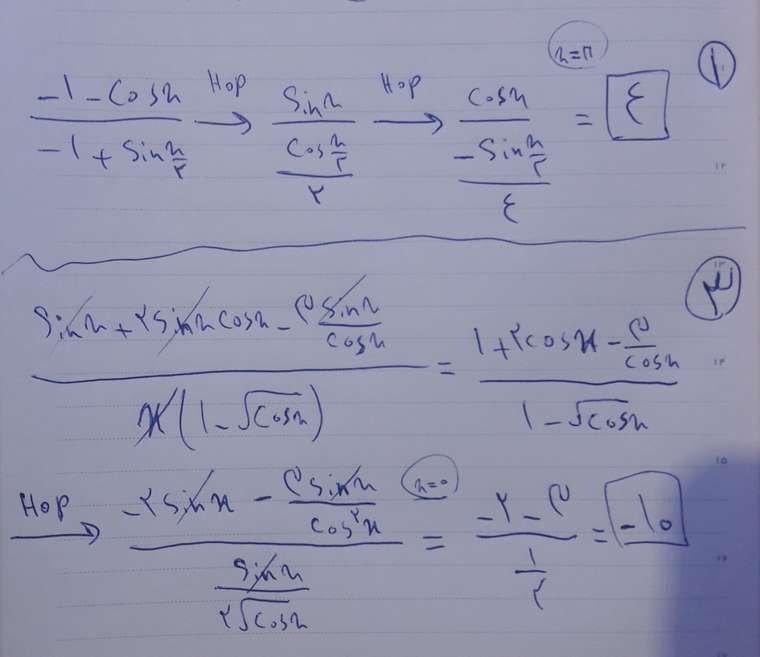 ١
(-١ - Cosx)/(-١ + Sin x/٢) Hop→ Sinx/((Cos x/٢)/٢) Hop→ Cosx/((-Sin x/٢)/٤) = ٤ x=π
٣
(Sinx + ٢Sinx Cosx - ٣ Sinx/Cosx)/(x(١ - √Cosx)) = (١ + ٢Cosx - ٣/Cosx)/(١ - √Cosx)
Hop→ (-٢Sinx - ٣Sinx/Cos²x)/(Sinx/(٢√Cosx)) x=٠ = (-٢ - ٣)/(١/٢) = -١٠